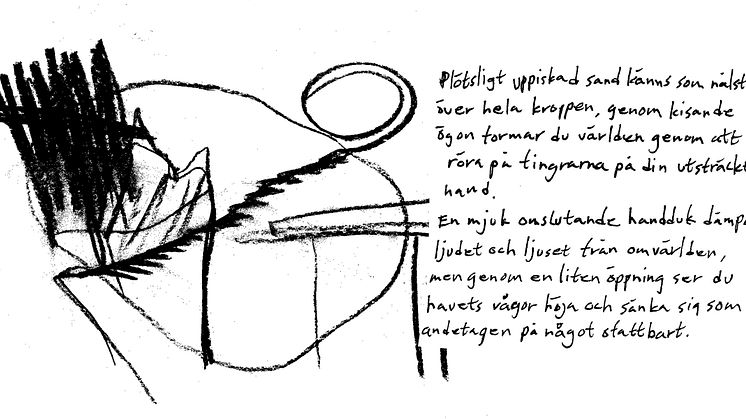 Plötsligt uppiskad sand känns som nålst
över hela kroppen, genom kisande
ögon formar du världen genom att
röra på tingrarna på din utsträckt
hand.
En mjuk omslutande handduk dämpa
ljudet och ljuset från omvärlden,
men genom en liten öppning ser du
havets vågor höja och sänka sig som
andetagen på något ofattbart.